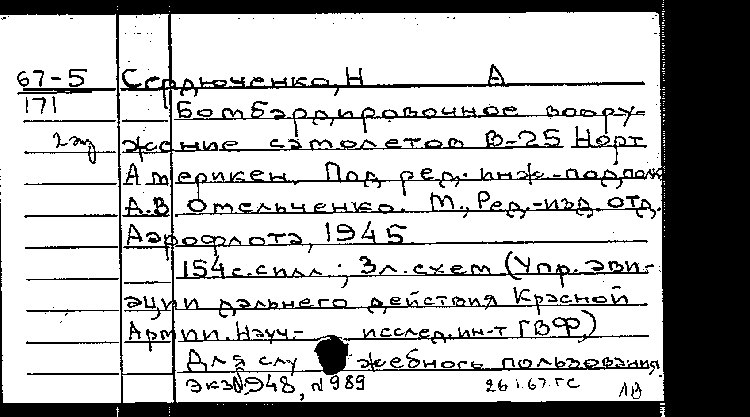 67-5 Сердюченко, Н А
171 Бомбардировочное воору-
2 экз жение самолетов В-25 Норт
Америкен. Под ред. инж.-подполк
А.В Омельченко. М., Ред.-изд. отд.
Аэрофлота, 1945
154 с. с илл.; 3 л. схем (Упр. ави-
ации дальнего действия Красной
Армии. Науч- исслед. ин-т ГВФ)
Для служебного пользования
экз № 948, № 989 26.1.67. ГС